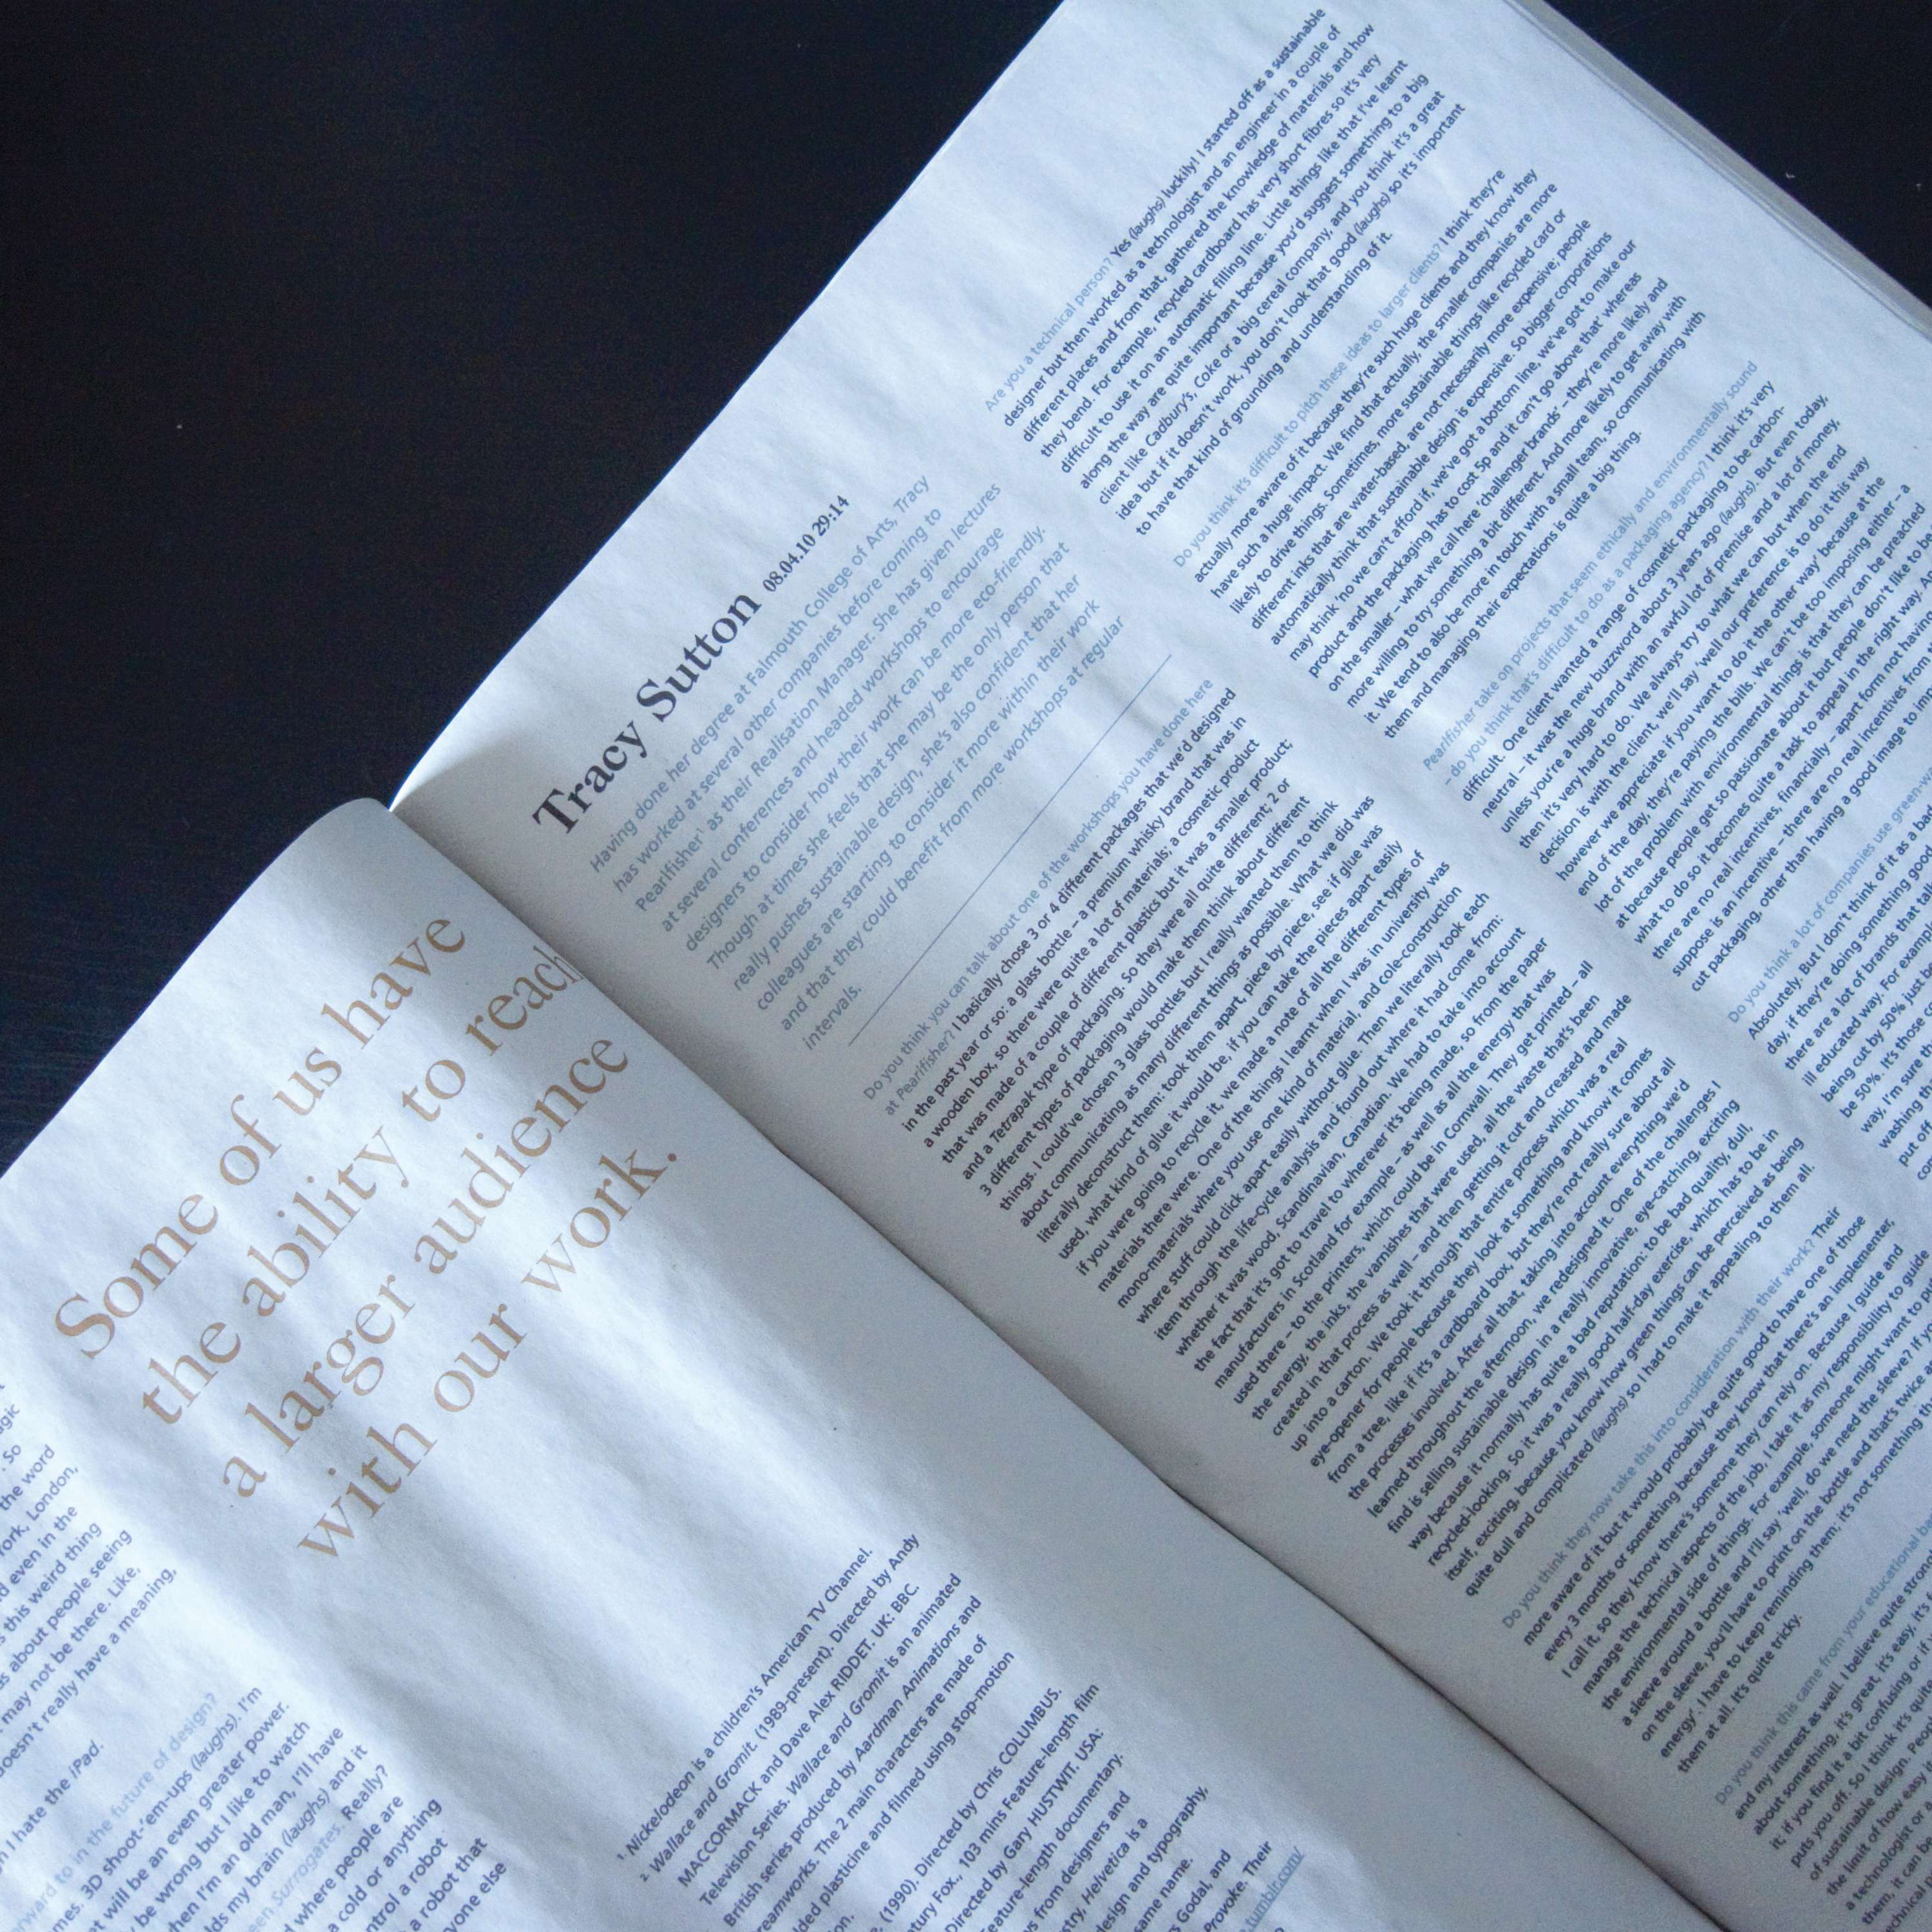 Some of us have
the ability to reach
a larger audience
with our work.
the word
York, London,
even in the
this weird thing
about people seeing
may not be there. Like.
doesn't really have a meaning,
I hate the iPad.
in the future of design?
3D shoot-'em-ups (laughs). I'm
will be an even greater power.
be wrong but I like to watch
when I'm an old man, I'll have
my brain (laughs) and it
Surrogates. Really?
where people are
a cold or anything
control a robot
a robot that
1. Nickelodeon is a children's American TV Channel.
2. Wallace and Gromit. (1989-present). Directed by Andy
MACCORMACK and Dave Alex RIDDET. UK: BBC.
Television Series. Wallace and Gromit is an animated
British series produced by Aardman Animations and
The 2 main characters are made of
plasticine and filmed using stop-motion
(1990). Directed by Chris COLUMBUS.
Fox., 103 mins Feature-length film
Directed by Gary HUSTWIT. USA:
Feature-length documentary.
from designers and
Helvetica is a
design and typography,
same name.
Godal, and
Provoke. Their
tumblr.com/
Tracy Sutton 08.04.10 29:14
Having done her degree at Falmouth College of Arts, Tracy
has worked at several other companies before coming to
Pearlfisher' as their Realisation Manager. She has given lectures
at several conferences and headed workshops to encourage
designers to consider how their work can be more eco-friendly.
Though at times she feels that she may be the only person that
really pushes sustainable design, she's also confident that her
colleagues are starting to consider it more within their work
and that they could benefit from more workshops at regular
intervals.
Do you think you can talk about one of the workshops you have done here
at Pearlfisher? I basically chose 3 or 4 different packages that we'd designed
in the past year or so: a glass bottle – a premium whisky brand that was in
a wooden box, so there were quite a lot of materials; a cosmetic product
that was made of a couple of different plastics but it was a smaller product;
and a Tetrapak type of packaging. So they were all quite different; 2 or
3 different types of packaging would make them think about different
things. I could've chosen 3 glass bottles but I really wanted them to think
about communicating as many different things as possible. What we did was
literally deconstruct them: took them apart, piece by piece, see if glue was
used, what kind of glue it would be, if you can take the pieces apart easily
if you were going to recycle it, we made a note of all the different types of
materials there were. One of the things I learnt when I was in university was
mono-materials where you use one kind of material, and cole-construction
where stuff could click apart easily without glue. Then we literally took each
item through the life-cycle analysis and found out where it had come from:
whether it was wood, Scandinavian, Canadian. We had to take into account
the fact that it's got to travel to wherever it's being made, so from the paper
manufacturers in Scotland for example – as well as all the energy that was
used there – to the printers, which could be in Cornwall. They get printed – all
the energy, the inks, the varnishes that were used, all the waste that's been
created in that process as well – and then getting it cut and creased and made
up into a carton. We took it through that entire process which was a real
eye-opener for people because they look at something and know it comes
from a tree, like if it's a cardboard box, but they're not really sure about all
the processes involved. After all that, taking into account everything we'd
learned throughout the afternoon, we redesigned it. One of the challenges I
find is selling sustainable design in a really innovative, eye-catching, exciting
way because it normally has quite a bad reputation: to be bad quality, dull,
recycled-looking. So it was a really good half-day exercise, which has to be in
itself, exciting, because you know how green things can be perceived as being
quite dull and complicated (laughs) so I had to make it appealing to them all.
Do you think they now take this into consideration with their work? Their
more aware of it but it would probably be quite good to have one of those
every 3 months or something because they know that there's an implementer,
I call it, so they know there's someone they can rely on. Because I guide and
manage the technical aspects of the job, I take it as my responsibility to guide
the environmental side of things. For example, someone might want to
a sleeve around a bottle and I'll say 'well, do we need the sleeve? If
on the sleeve, you'll have to print on the bottle and that's twice
energy'. I have to keep reminding them, it's not something
them at all. It's quite tricky.
Do you think this came from your educational
and my interest as well. I believe quite
about something, it's great, it's easy,
it; if you find it a bit confusing or
puts you off. So I think it's
of sustainable design.
the limit of how easy
a technologist or
them, it can
Are you a technical person? Yes (laughs) luckily! I started off as a sustainable
designer but then worked as a technologist and an engineer in a couple of
different places and from that, gathered the knowledge of materials and how
they bend. For example, recycled cardboard has very short fibres so it's very
difficult to use it on an automatic filling line. Little things like that I've learnt
along the way are quite important because you'd suggest something to a big
client like Cadbury's, Coke or a big cereal company, and you think it's a great
idea but if it doesn't work, you don't look that good (laughs) so it's important
to have that kind of grounding and understanding of it.
Do you think it's difficult to pitch these ideas to larger clients? I think they're
actually more aware of it because they're such huge clients and they know they
have such a huge impact. We find that actually, the smaller companies are more
likely to drive things. Sometimes, more sustainable things like recycled card or
different inks that are water-based, are not necessarily more expensive; people
automatically think that sustainable design is expensive. So bigger corporations
may think 'no we can't afford if, we've got a bottom line, we've got to make our
product and the packaging has to cost 5p and it can't go above that' whereas
on the smaller – what we call here 'challenger brands' – they're more likely and
more willing to try something a bit different. And more likely to get away with
it. We tend to also be more in touch with a small team, so communicating with
them and managing their expectations is quite a big thing.
Pearlfisher take on projects that seem ethically and environmentally sound
- do you think that's difficult to do as a packaging agency? I think it's very
difficult. One client wanted a range of cosmetic packaging to be carbon-
neutral – it was the new buzzword about 3 years ago (laughs). But even today,
unless you're a huge brand with an awful lot of premise and a lot of money,
then it's very hard to do. We always try to what we can but when the end
decision is with the client, we'll say 'well our preference is to do it this way
however we appreciate if you want to do it the other way' because at the
end of the day, they're paying the bills. We can't be too imposing either – a
lot of the problem with environmental things is that they can be preached
at because people get so passionate about it but people don't like to be
what to do so it becomes quite a task to appeal in the right way.
there are no real incentives, financially – apart form not having
suppose is an incentive – there are no real incentives from
cut packaging, other than having a good image to
Do you think a lot of companies use green-
Absolutely. But I don't think of it as a
day, if they're doing something good
there are a lot of brands that
ill educated way. For example
being cut by 50% just
be 50%. It's those
way, I'm sure
washing
put off